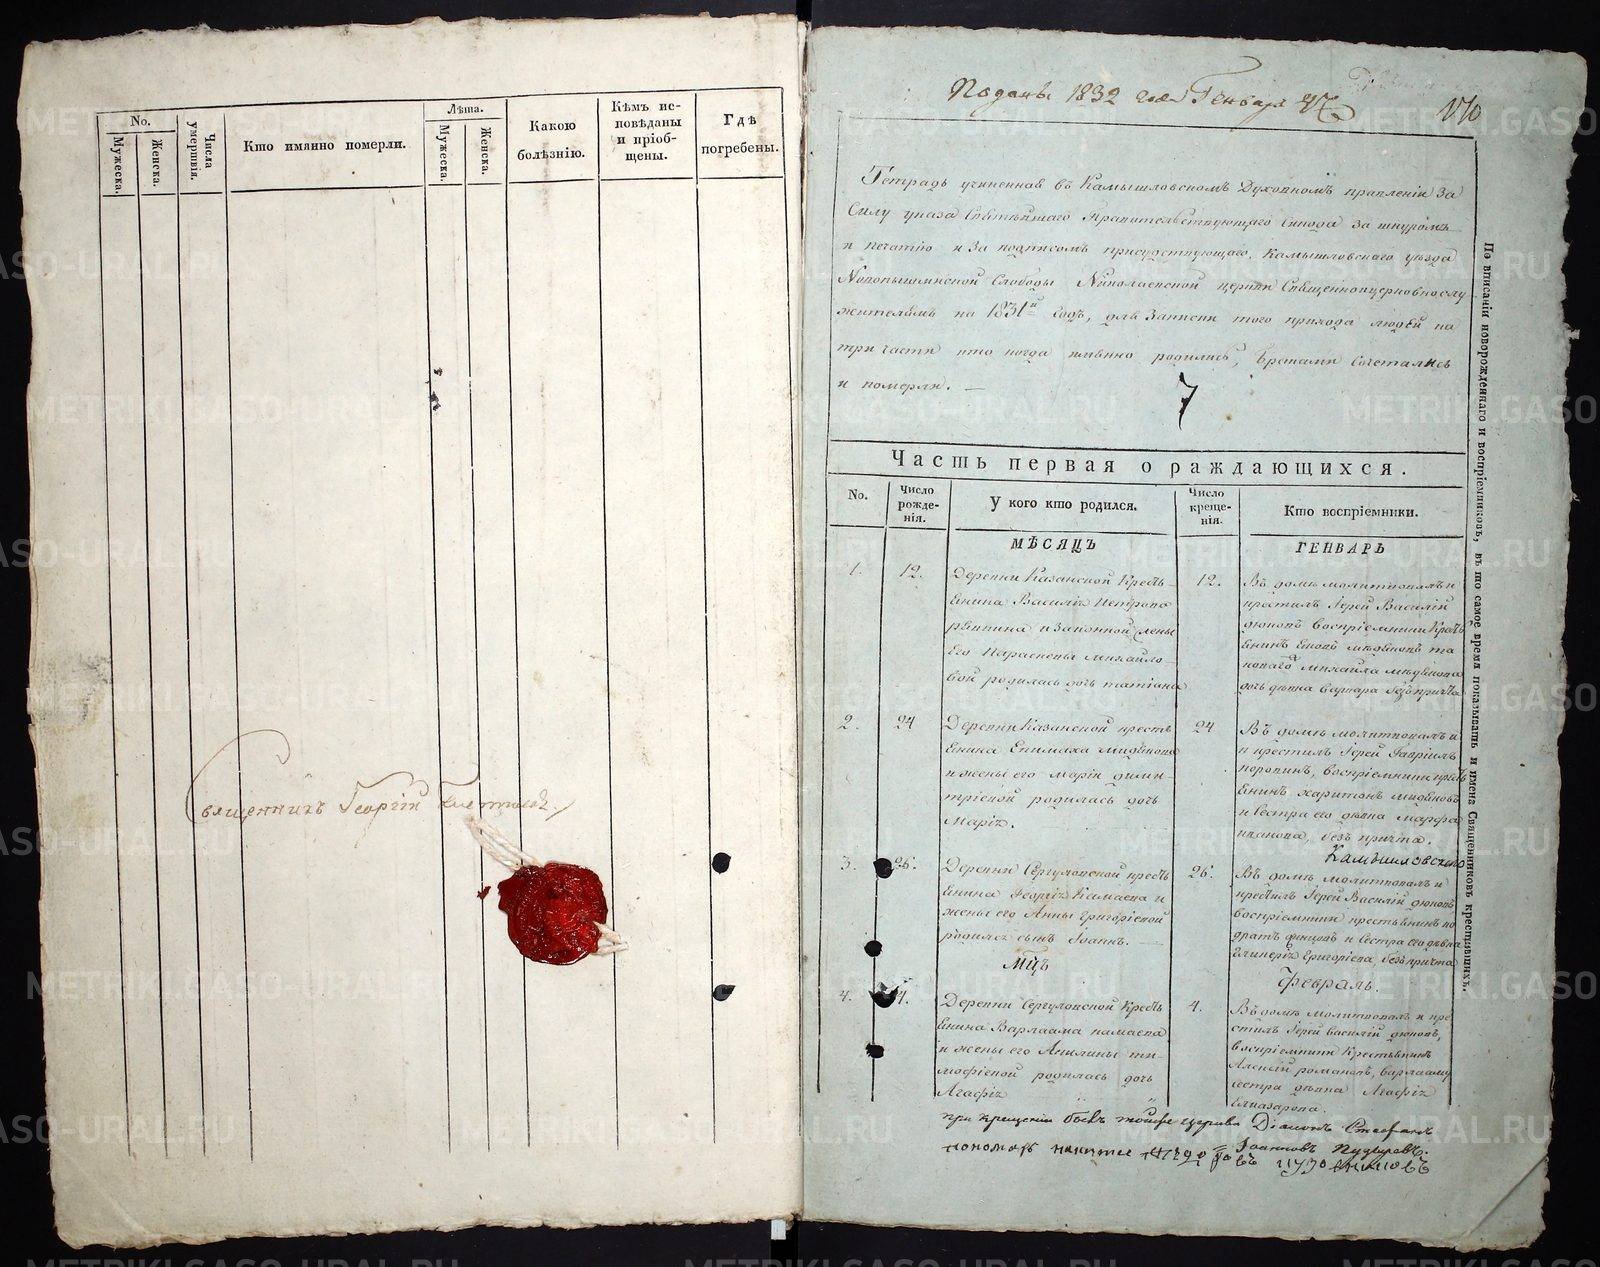 No.
Мужеска.
Женска.
Числа умершвія.
Кто имянно померли.
Лѣта.
Мужеска.
Женска.
Какою
болѣзнію.
Кѣмъ ис-
повѣданы
и пріоб-
щены.
Гдѣ
погребены.
Священникъ Георгій
Поданы 1832 года Генваря
170
Тетрадь учиненная въ Камышловскомъ Духовномъ правленіи за
Силу указа Святѣйшаго Правительствующаго Синода за шнуромъ
и печатію и за подписомъ присудствующаго, Камышловскаго уѣзда
Новопышминской Слободы Николаевской церкви Священноцерковнослу
жителямъ на 1831й годъ, для записки того прихода людей на
три части кто когда имянно родились, браками сочетались
и померли. —
7
Часть первая о раждающихся.
No.
Число
рожде-
нія.
У кого кто родился.
Число
креще-
нія.
Кто воспріемники.
МѢСЯЦЪ
ГЕНВАРЬ
1.
12.
Деревни Казанской Кресть
янина Василія Петрова
и законной жены
Его Параскевы михайло-
вой родилась дочь татіана
12.
Въ домѣ молитвовалъ и
крестилъ Іерей Василій
дюковъ воспріемники Крестъ
янинъ Яковъ медвѣковъ та
коваго михаила медвѣкова
дочь дѣвка варвара безъ причта
2.
24
Деревни Казанской кресть
янина Епимаха
и жены его маріи дими-
тріевой родилась дочь
Марія.
24
Въ домѣ молитвовалъ и
и крестилъ Іерей Гавріилъ
воспріемники кресть
янинъ харитонъ
и Сестра его дѣвка марфа
иванова, безъ причта.
Камышловскаго
3.
26.
Деревни Сергуловской кресть
янина Георгія Камаева и
жены его Анны григоріевой
родился сынъ Іоаннъ. —
26.
Въ домѣ молитвовалъ и
крестилъ Іерей Василій дюковъ
воспріемники крестьянинъ ко
дратъ и Сестра его дѣвка
григоріева безъ причта
МЦЪ
Февраль.
4.
4.
Деревни Сергуловской Кресть
янина Варлаама камаева
и жены его Акилины ти-
мофѣевой родилась дочь
Агафія
4.
Въ домѣ молитвовалъ и кре
стилъ Іерей василій дюковъ,
воспріемники Крестьянинъ
Алексій романовъ, варлааму
сестра дѣвка Агафія
Елиазарова.
при крещеніи былъ тойже церкви Діаконъ Стефанъ
пономарь
Іоанновъ
По вписаніи новорожденнаго и воспріемниковъ, въ то самое время показывать и имена Священниковъ крестившихъ.
METRIKI.GASO-URAL.RU